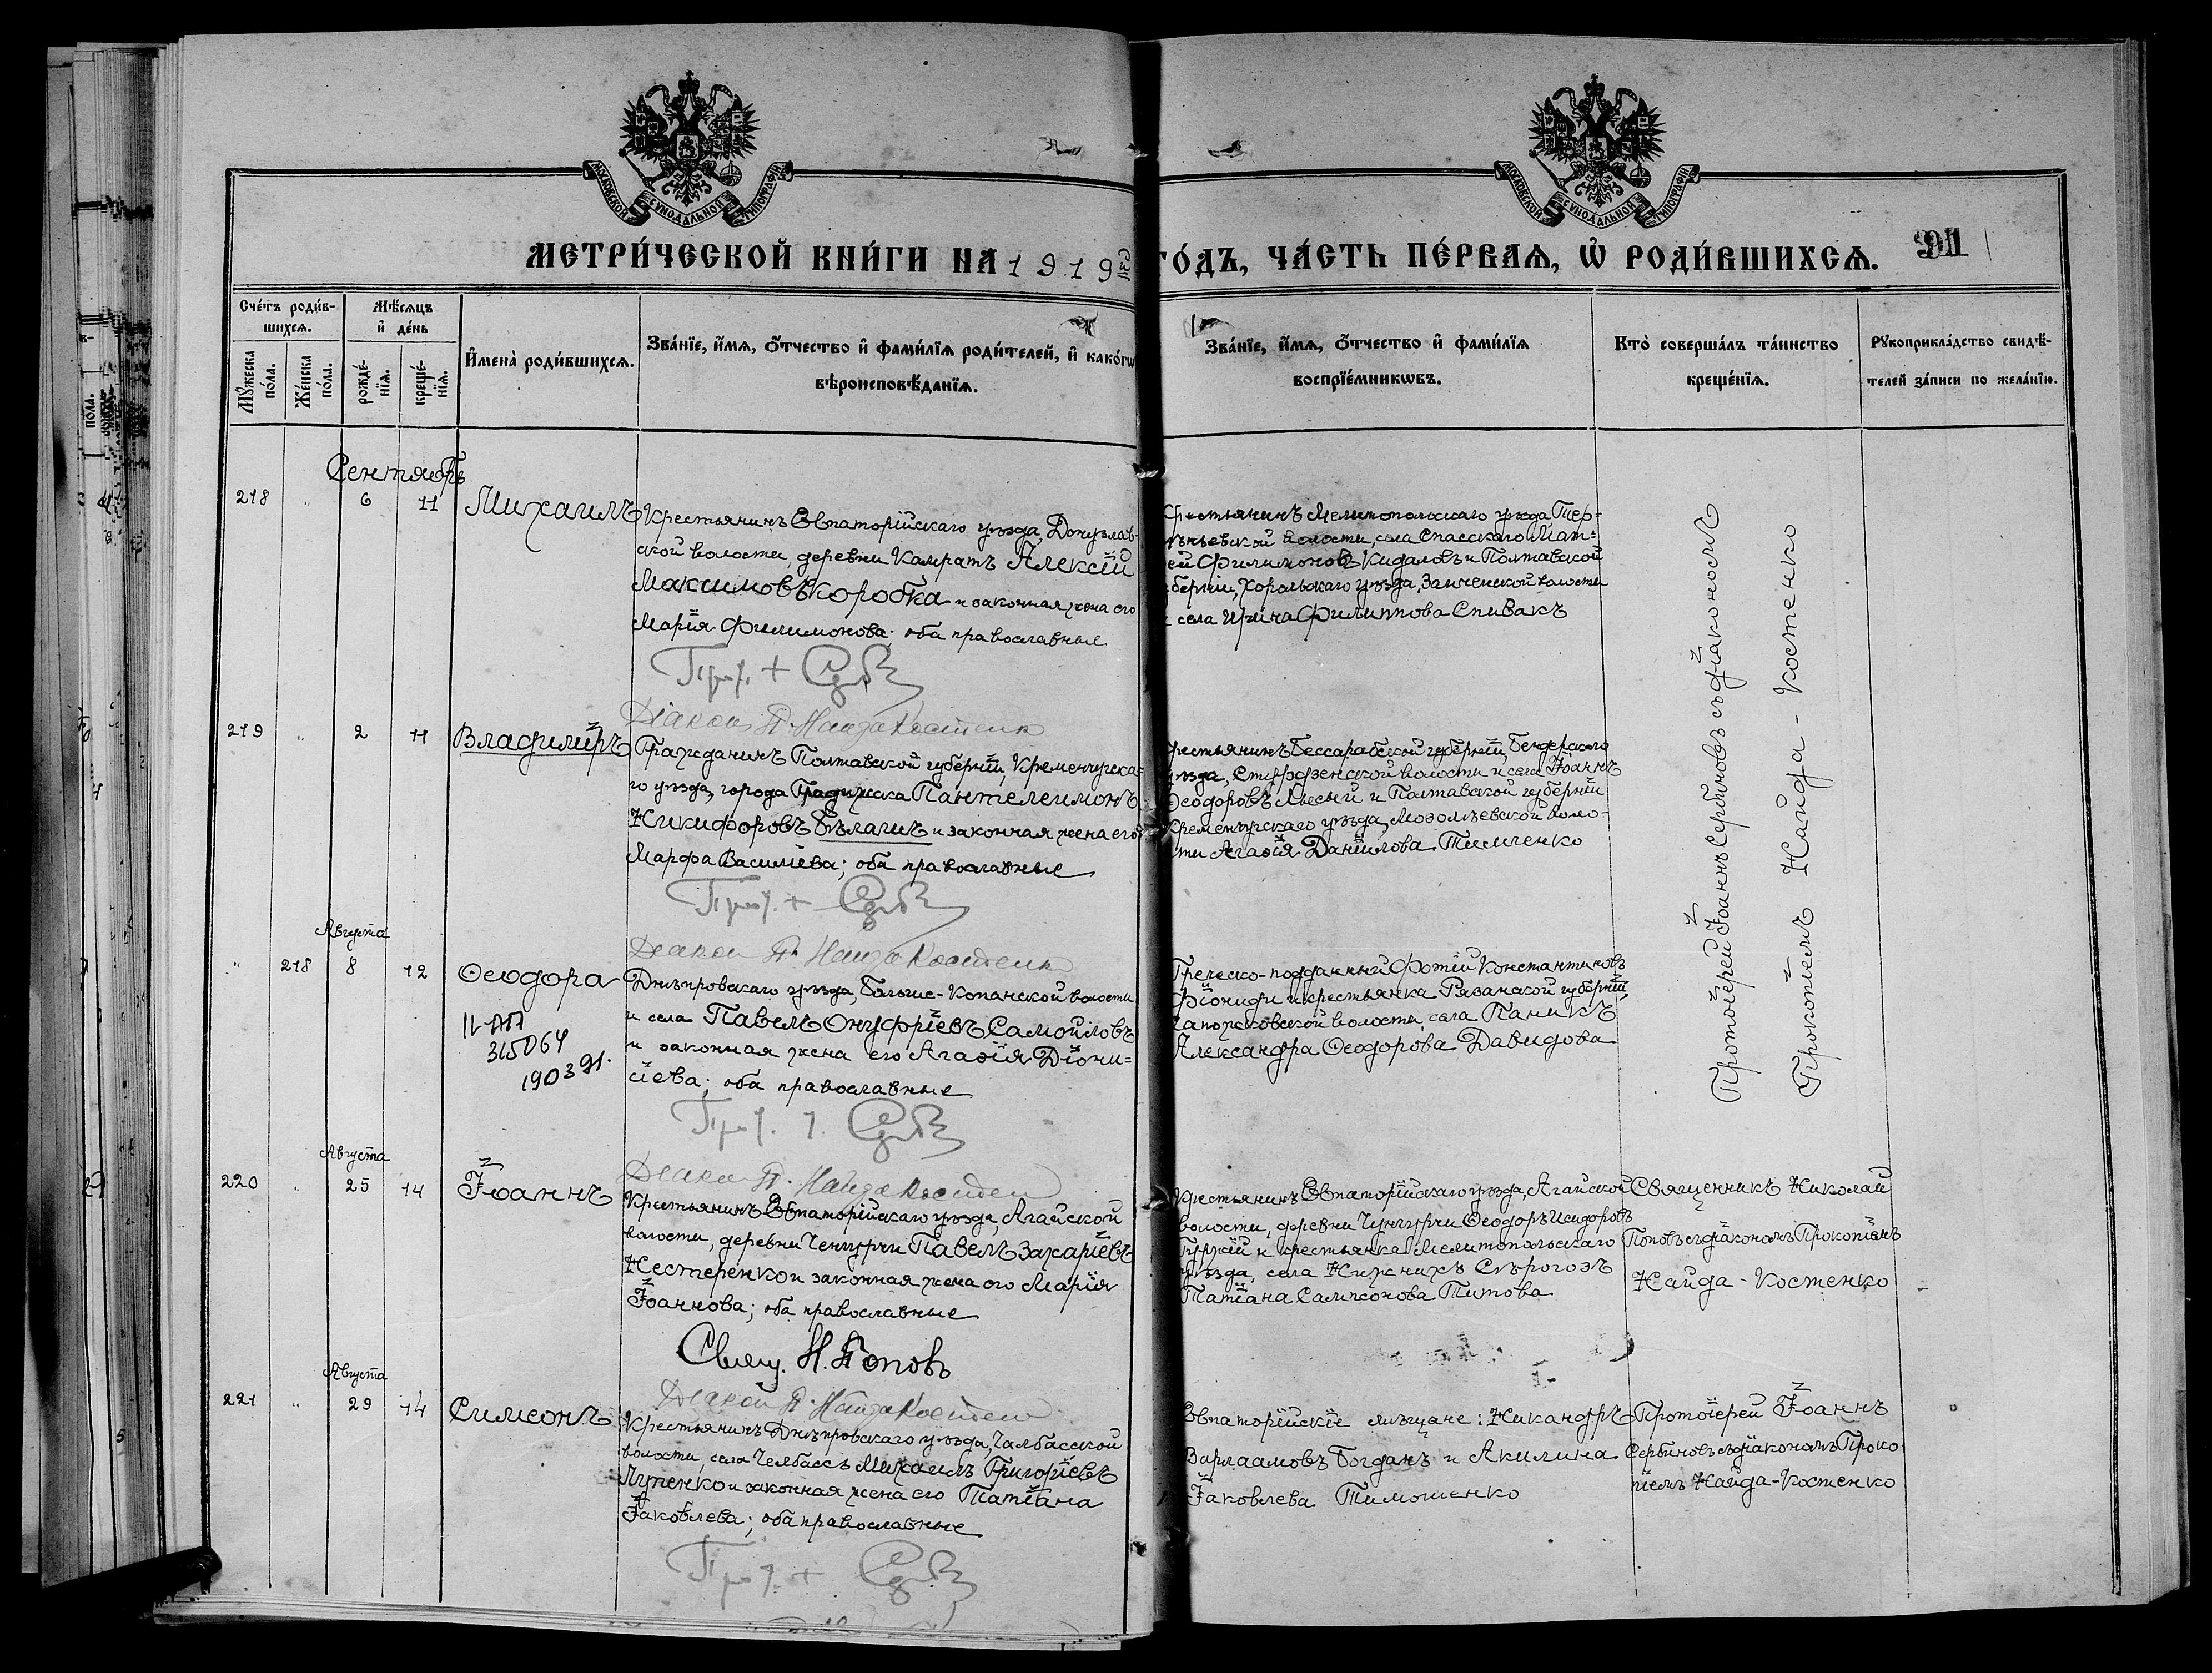 МОСКОВСКОЙ СѴНОДАЛЬНОЙ ТИПОГРАФІИ
МОСКОВСКОЙ СѴНОДАЛЬНОЙ ТИПОГРАФІИ
МЕТРИ́ЧЕСКОЙ КНИ́ГИ НА 1919
ГО́ДЪ, ЧА́СТЬ ПЕ́РВАѦ, Ѡ҆ РОДИ́ВШИХСѦ.
Сче́тъ роди́в-
шихсѧ.
Мꙋ́жеска по́ла.
Же́нска по́ла.
Мѣ́сѧцъ
и҆ де́нь
рожде́-
нїѧ.
креще́-
нїѧ.
И҆мена̀ роди́вшихсѧ.
Зва́нїе, и҆́мѧ, ѻ҆́тчество и҆ фами́лїѧ роди́телей, и҆ како́гѡ
вѣроисповѣ́данїѧ.
Зва́нїе, и҆́мѧ, ѻ҆́тчество и҆ фами́лїѧ
воспрїе́мникѡвъ.
Кто̀ соверша́лъ та́инство
креще́нїѧ.
Рꙋкоприкла́дство свидѣ́-
телей за́писи по жела́нїю.
Сентябрь
218 " 6 11 Михаилъ
Крестьянинъ Евпаторійскаго уѣзда, Донузлав-
ской волости, деревни Камратъ Алексій
Максимовъ Коробка и законная жена его
Марія Филимонова; оба православные
Діакон П. Найда Костенко
Крестьянинъ Мелитопольскаго уѣзда Тер-
пѣньевской волости, села Спасскаго Мат-
ѳей Филимоновъ Кидаловъ и Полтавской
губерніи, Хорольскаго уѣзда, волости
и села Ирина Филиппова Спивакъ
219 " 2 11 Владиміръ
Гражданинъ Полтавской губерніи, Кременчугска-
го уѣзда, города Градижска Пантелеимонъ
Никифоровъ Бѣлашъ и законная жена его
Марфа Васильева; оба православные
Діакон П. Найда Костенко
Крестьянинъ Бессарабской губерніи, Бендерскаго
уѣзда, волости и села Іоаннъ
Ѳеодоровъ Лысый и Полтавской губерніи
Кременчугскаго уѣзда, волo-
сти Агаѳія Даніилова Тимченко
Протоіерей Іоаннъ Сербиновъ съ діакономъ
Прокопіемъ Найда-Костенко
Августа
" 218 8 12 Ѳеодора
II-АП
315064
190391.
Днѣпровскаго уѣзда, Больше-Копанской волости
и села Павелъ Онуфріевъ Самойловъ
и законная жена его Агаѳія Діони-
сіева; оба православные
Діакон П. Найда Костенко
Греческо-подданный Фотій Константиновъ
Фіониди и крестьянка Рязанской губерніи,
волости, села Паникъ
Александра Ѳеодорова Давидова
Августа
220 " 25 14 Іоаннъ
Крестьянинъ Евпаторійскаго уѣзда, Агайской
волости, деревни Ченгурчи Павелъ Захаріевъ
Нестеренко и законная жена его Марія
Іоаннова; оба православные
Свящ. Н. Поповъ
Діакон П. Найда Костенко
Крестьянинъ Евпаторійскаго уѣзда, Агайской
волости, деревни Чунгурчи Ѳеодоръ Исидоровъ
и крестьянка Мелитопольскаго
уѣзда, села Нижнихъ Сѣрогозъ
Татіана Сампсонова Титова
Священникъ Николай
Поповъ съ діакономъ Прокопіемъ
Найда-Костенко
Августа
221 " 29 14 Симеонъ
Крестьянинъ Днѣпровскаго уѣзда, Чалбасской
волости, села Челбассъ Михаилъ Григоріевъ
Луценко и законная жена его Татіана
Іаковлева; оба православные
Евпаторійскіе мѣщане: Никандръ
Варлаамовъ Богданъ и Акилина
Іаковлева Тимошенко
Протоіерей Іоаннъ
Сербиновъ съ діакономъ Проко-
піемъ Найда-Костенко